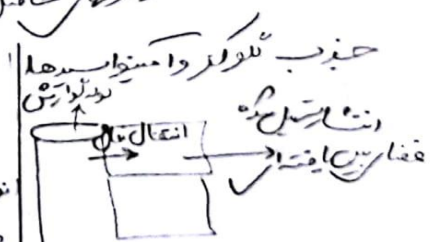 جذب گلوکز و آمینواسیدها
لوله گوارش
انتقال فعال
انتشار تسهیل شده
فضای بین یاخته‌ای